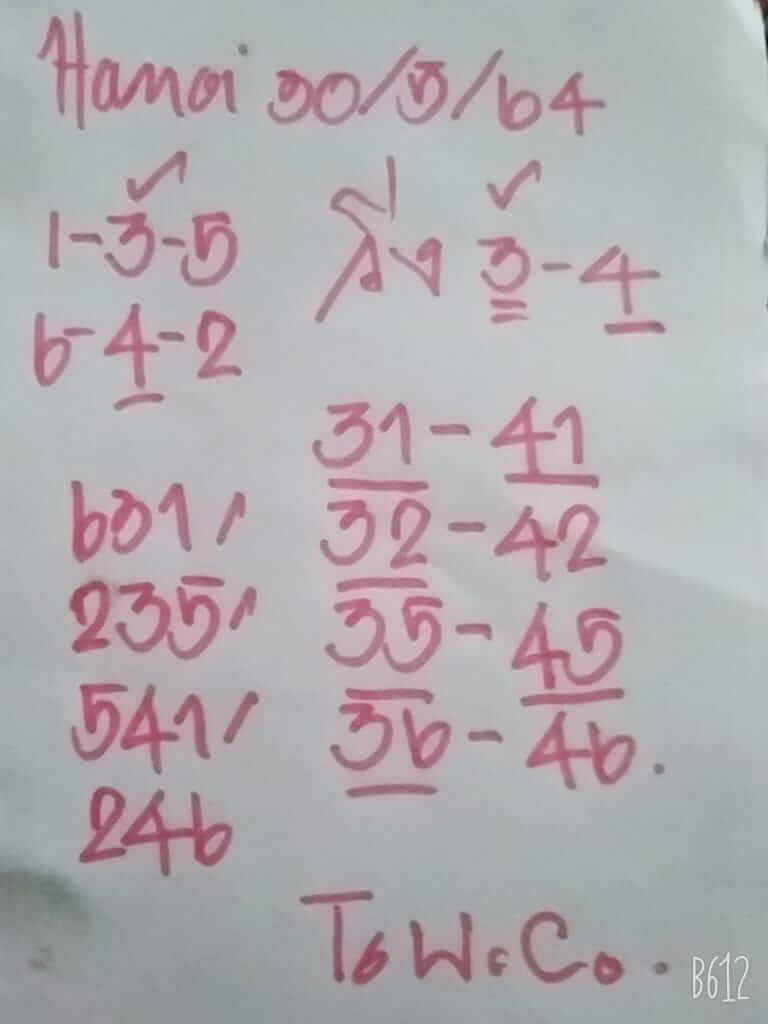 Hanoi 30/5/64
1-3-5 วิ่ง 3-4
6-4-2
31-41
631/ 32-42
235/ 35-45
541/ 36-46.
246
B612